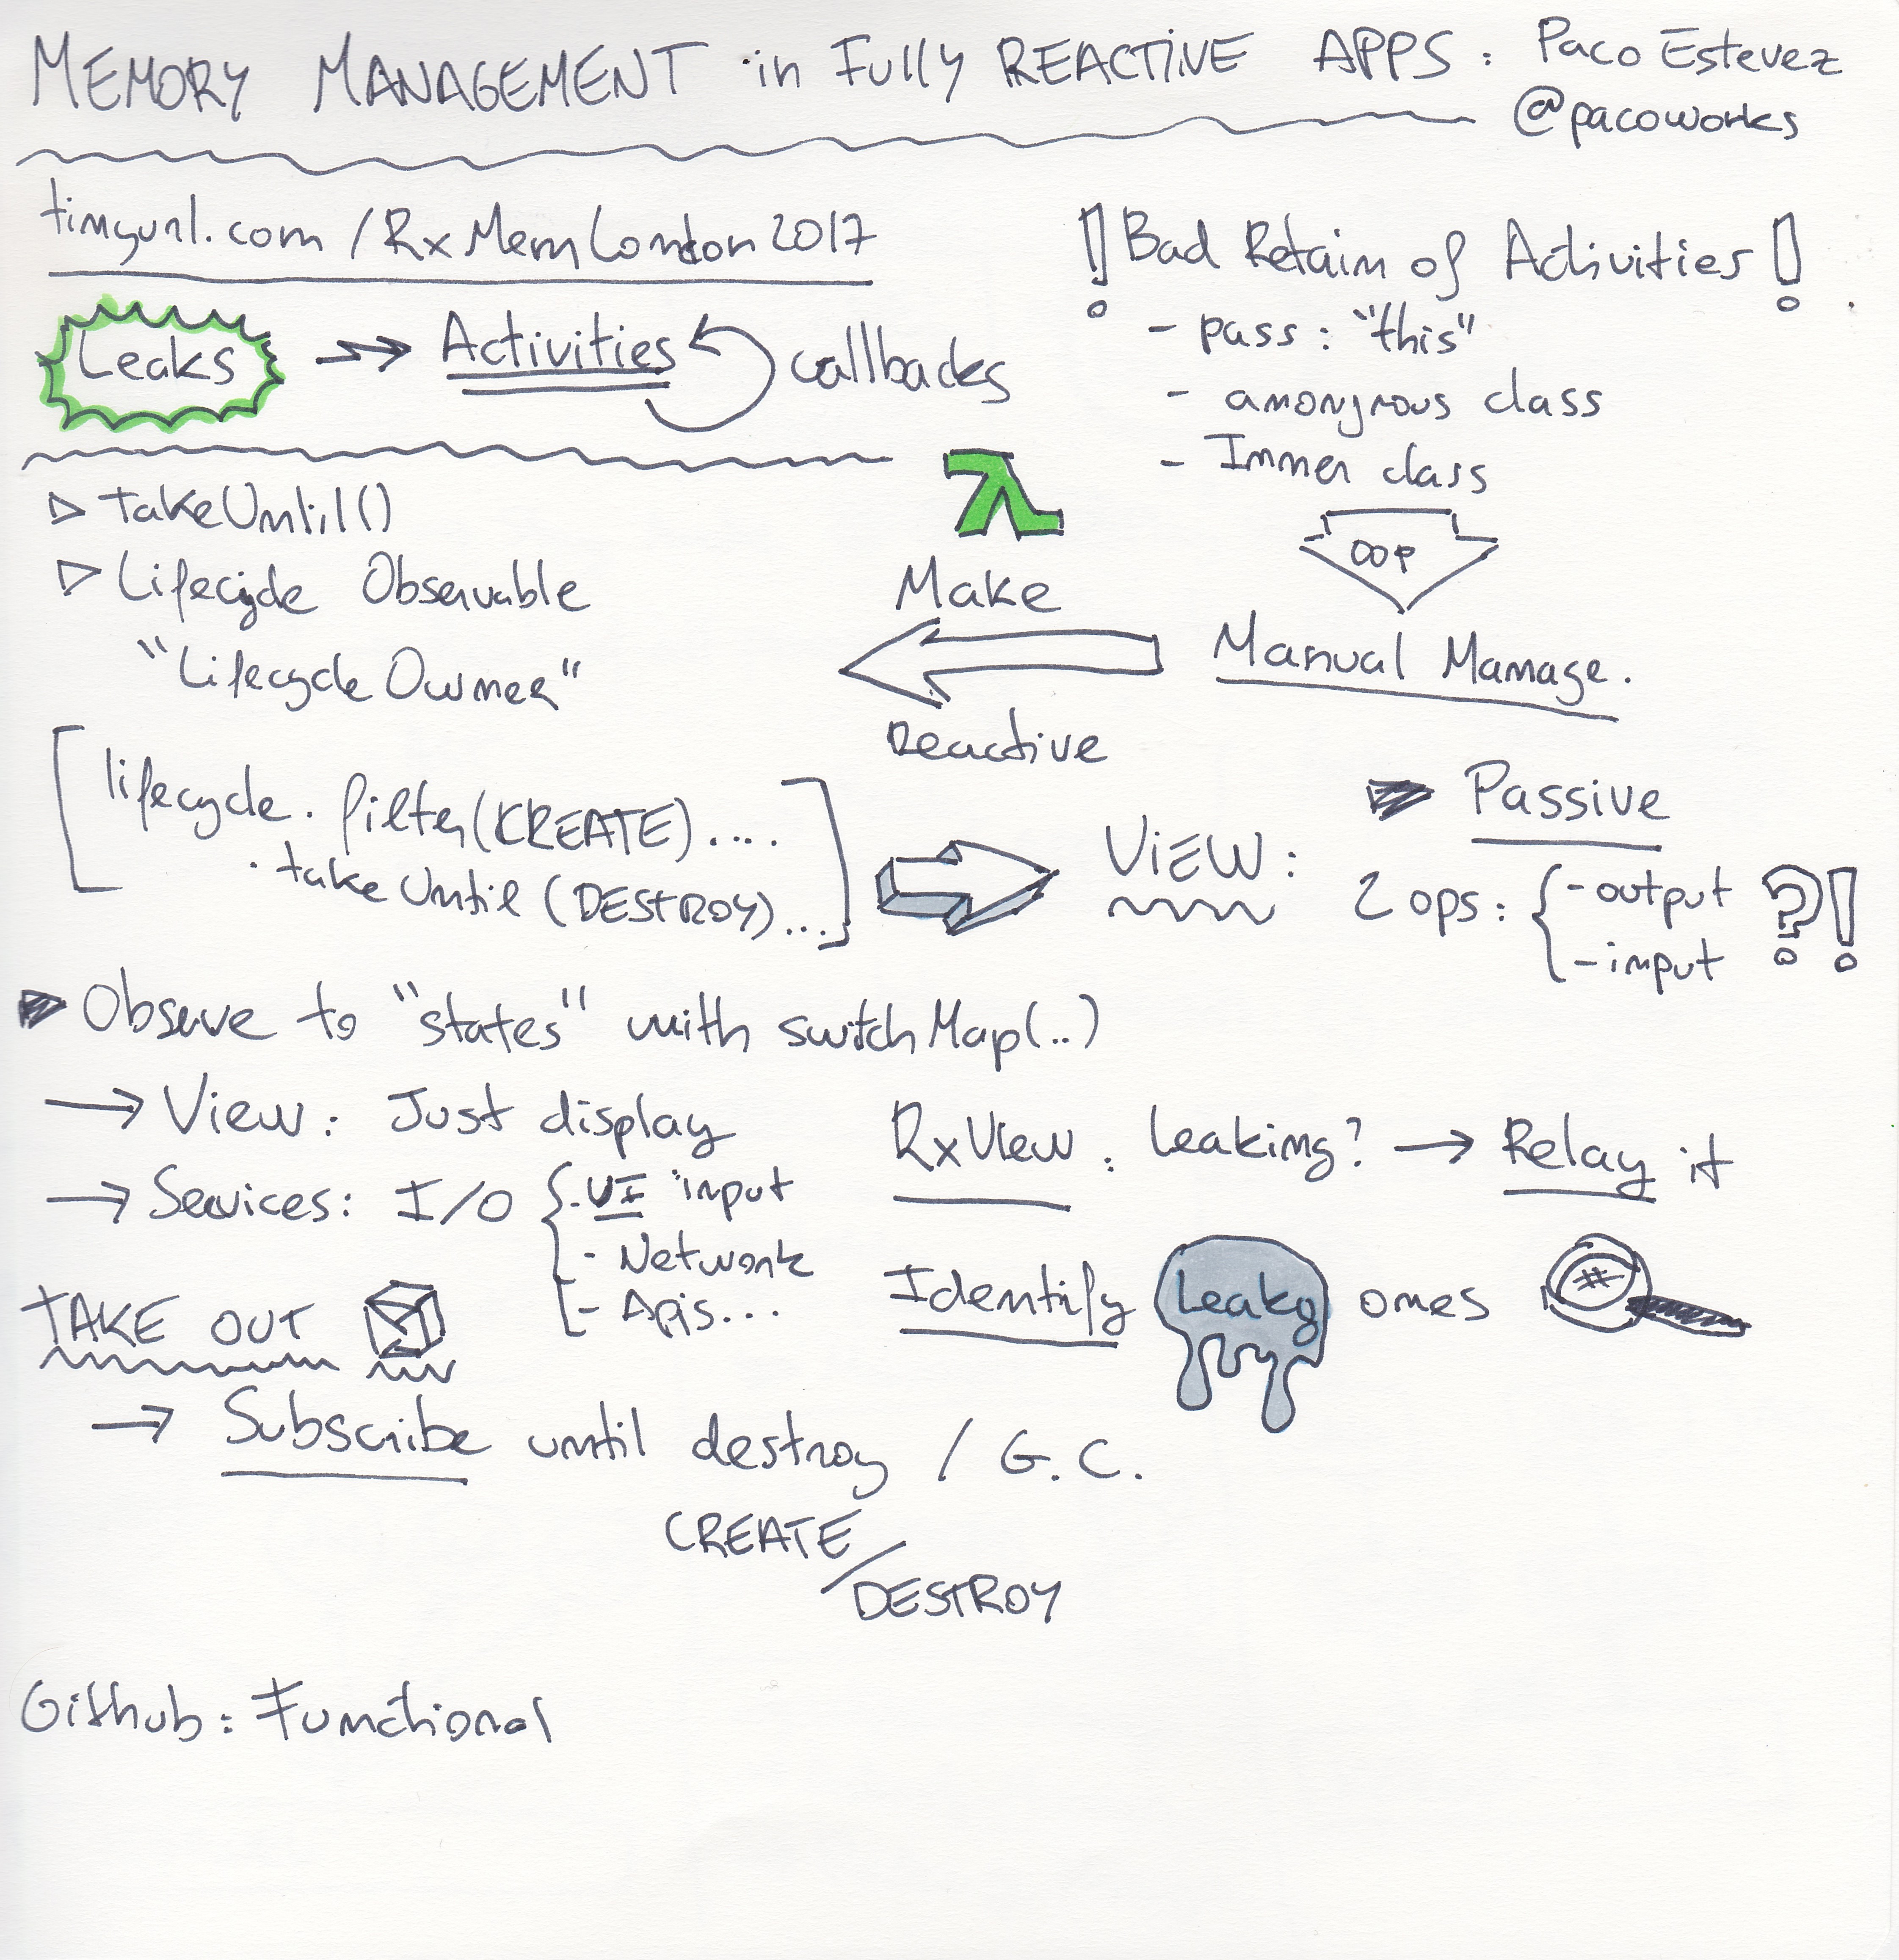 MEMORY MANAGEMENT in Fully REACTIVE APPS : Paco Estevez
@pacoworks
tinyurl.com /RxMemLondon2017
Leaks Activities callbacks
! Bad Retain of Activities !
- pass : "this"
- anonymous class
- Inner class
OOP
Manual Manage.
λ
Make
Reactive
takeUntil()
Lifecycle Observable
"Lifecycle Owner"
lifecycle. filter(CREATE)....
. takeUntil (DESTROY)...
VIEW :
Passive
2 ops : - output ?!
- input
Observe to "states" with switchMap(..)
→ View : Just display
→ Services : I/O - UI input
- Network
- Apis...
RxView : leaking? → Relay it
Identify Leaky ones
TAKE OUT
→ Subscribe until destroy / G.C.
CREATE/
DESTROY
Github : Functional